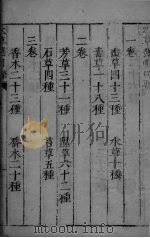 一卷
草四十三種 水草十種
草一十八種
二卷
芳草三十一種 隰草六十二種
石草四種 苔草五種
三卷
香木二十三種 喬木二十種